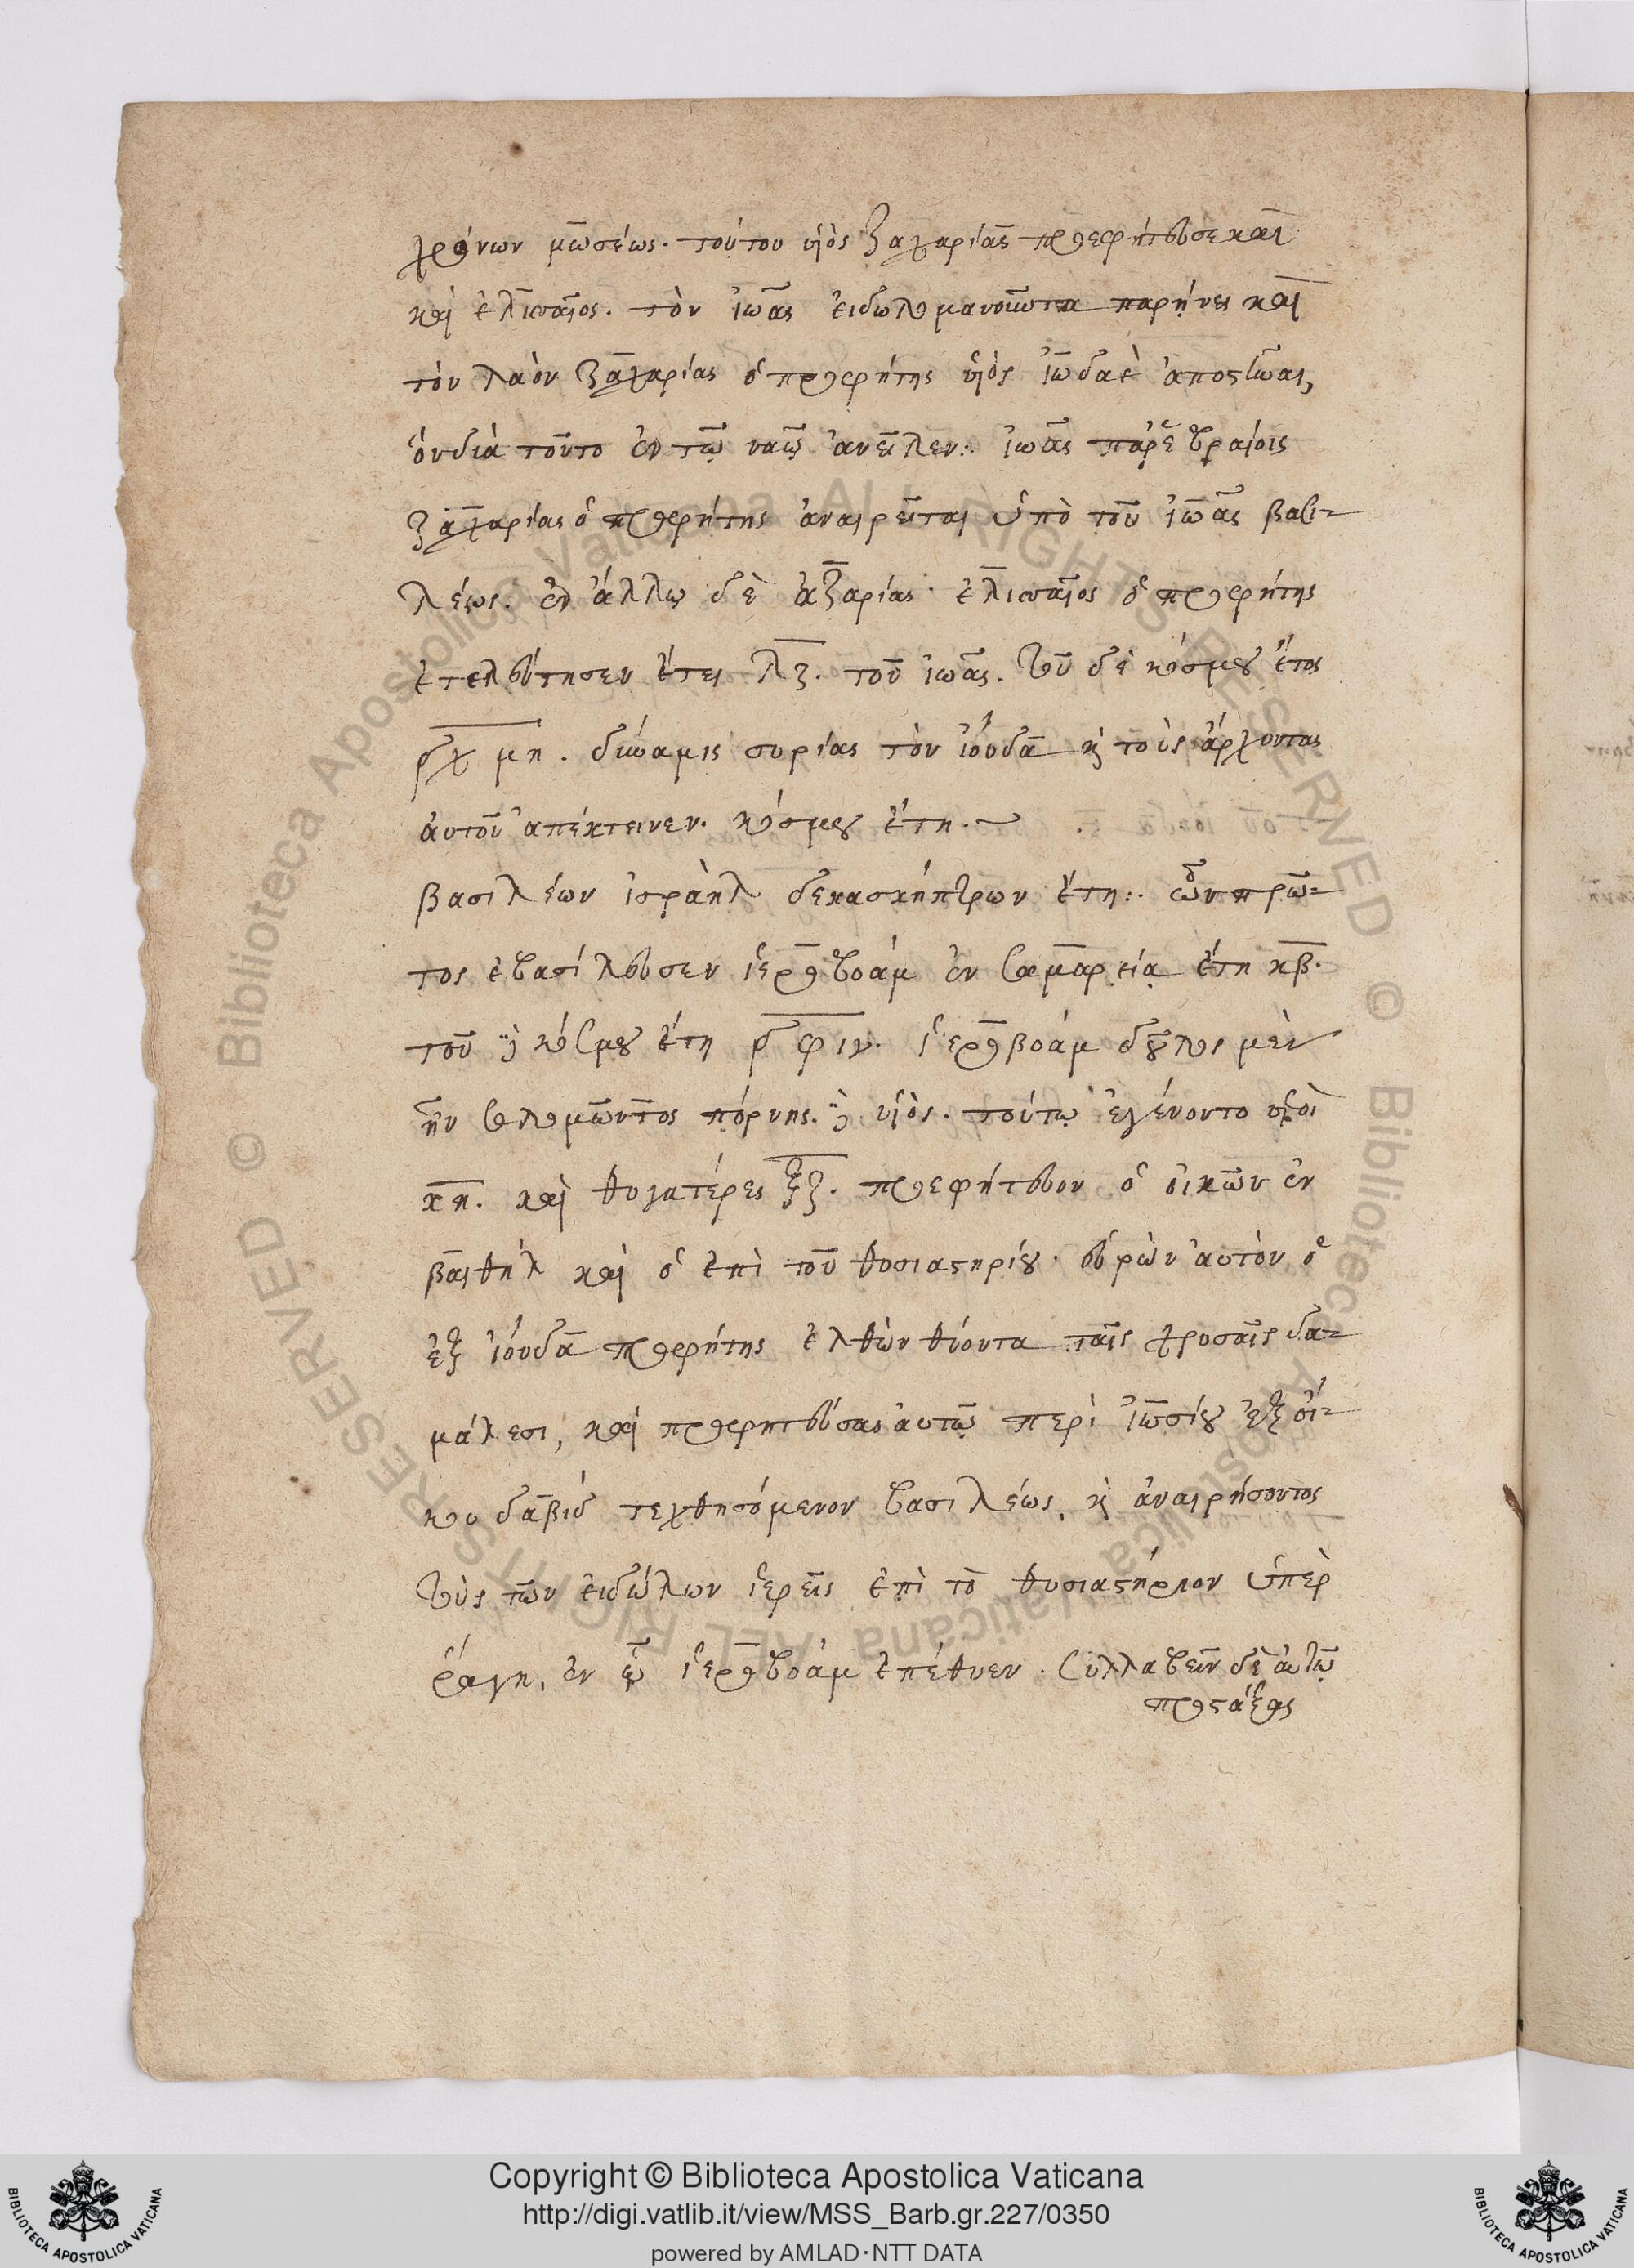 χρόνων μωσέως. τούτου υἱὸς ζαχαρίας προεφήτευσε καὶ
καὶ ἐλισσαῖος. τὸν ἰωᾶς εἰδωλομανοῦντα παρῄνει καὶ
τὸν λαὸν ζαχαρίας ὁ προφήτης υἱὸς ἰωδαὲ ἀποστῆναι,
ὃν διὰ τοῦτο ἐν τῷ ναῷ ἀνεῖλεν:. ἰωᾶς παρ' ἑβραίοις
ζαχαρίας ὁ προφήτης ἀναιρεῖται ὑπὸ τοῦ ἰωᾶς βασι=
λέως. ἐν ἄλλῳ δὲ ἀζαρίας· ἐλισσαῖος ὁ προφήτης
ἐτελεύτησεν ἔτει λζ. τοῦ ἰωᾶς. τοῦ δὲ κόσμου ἔτος
͵δχμη. δύναμις συρίας τὸν ἰούδα κ̀ τοὺς ἄρχοντας
αὐτοῦ ἀπέκτεινεν. κόσμου ἔτη.
βασιλέων ἰσραὴλ δεκασκήπτρων ἔτη:. ὧν πρῶ=
τος ἐβασίλευσεν ἱεροβοάμ ἐν σαμαρείᾳ ἔτη κβ.
τοῦ δὲ κόσμου ἔτη ͵δφιν. ἱεροβοάμ δοῦλος μὲν
ἦν σολομῶντος πόρνης. δὲ υἱὸς. τούτῳ ἐγένοντο υἱοὶ
κη. καὶ θυγατέρες ξζ. προεφήτευον ὁ οἰκῶν ἐν
βαιθὴλ καὶ ὁ ἐπὶ τοῦ θυσιαστηρίου· εὑρὼν αὐτὸν ὁ
ἐξ ἰούδα προφήτης ἐλθὼν θύοντα ταῖς χρυσαῖς δα=
μάλεσι, καὶ προφητεύσας αὐτῷ περὶ ἰωσίου ἐξ οἴ=
κου δαβίδ τεχθησόμενον βασιλέως, κ̀ ἀναιρήσοντος
τοὺς τῶν εἰδώλων ἱερεῖς ἐπὶ τὸ θυσιαστήριον ὑπὲρ
ῥάγη, ἐν ᾧ ἱεροβοάμ ἐπέθυεν. συλλαβεῖν δὲ αὐτῷ
προστάξας
Copyright © Biblioteca Apostolica Vaticana
http://digi.vatlib.it/view/MSS_Barb.gr.227/0350
powered by AMLAD·NTT DATA
BIBLIOTECA APOSTOLICA VATICANA
BIBLIOTECA APOSTOLICA VATICANA
© Biblioteca Apostolica Vaticana ALL RIGHTS RESERVED © Biblioteca Apostolica Vaticana ALL RIGHTS RESERVED